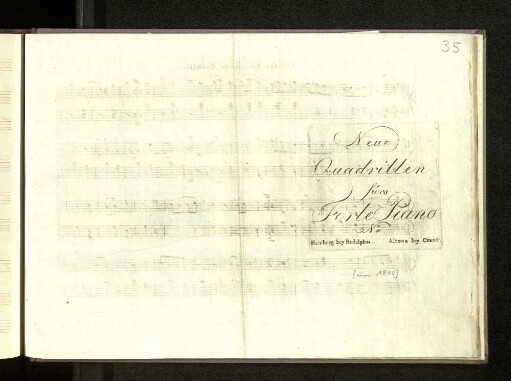 35
Neue
Quadrillen
fürs
Forte Piano
No
Hamburg bey Rudolphus. Altona bey Crone.
(um 1810)